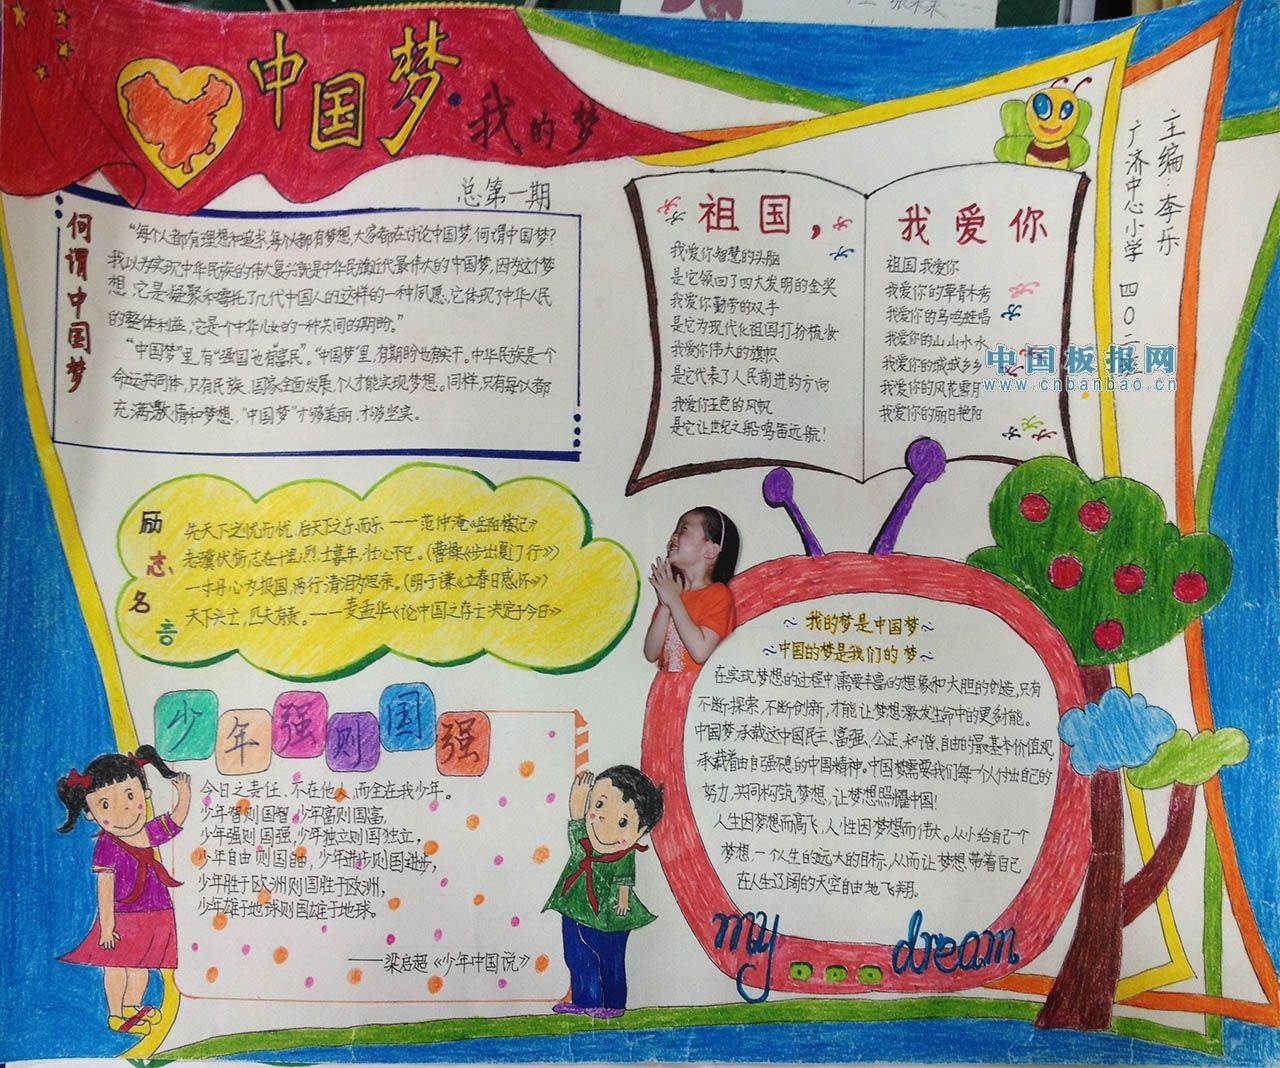 中国梦·我的梦
总第一期
主编:李乐
广济中心小学 四〇二
何谓中国梦
“每个人都有理想和追求,每个人都有梦想,大家都在讨论中国梦,何谓中国梦?
我以为实现中华民族的伟大复兴就是中华民族近代最伟大的中国梦,因为这个梦
想,它是凝聚和寄托了几代中国人的这样的一种夙愿,它体现了中华人民
的整体利益,它是个中华儿女的一种共同的期盼。”
“中国梦”里,有“强国”也有“富民”。“中国梦”里,有期盼也有实干。中华民族是一个
命运共同体,只有民族、国家全面发展,个人才能实现梦想。同样,只有每个人都
充满激情和梦想,“中国梦”才够美丽,才够坚实。
祖国,我爱你
我爱你智慧的头脑
是它领回了四大发明的金奖
我爱你勤劳的双手
是它为现代化祖国打扮梳妆
我爱你伟大的旗帜
是它代表了人民前进的方向
我爱你五色的风帆
是它让世纪之船鸣笛远航!
祖国,我爱你
我爱你的草青木秀
我爱你的鸟鸣蛙唱
我爱你的山山水水
我爱你的城城乡乡
我爱你的风花雪月
我爱你的丽日艳阳
中国板报网
www.cnbanbao.cn
励志名言
先天下之忧而忧,后天下之乐而乐 ——范仲淹《岳阳楼记》
老骥伏枥志在千里;烈士暮年,壮心不已。(曹操《步出夏门行》)
一寸丹心为报国,两行清泪为思亲。(明于谦《立春日感怀》)
天下兴亡,匹夫有责。——麦孟华《论中国之存亡决定于今日》
少年强则国强
今日之责任,不在他人,而全在我少年。
少年智则国智,少年富则国富,
少年强则国强,少年独立则国独立,
少年自由则国自由,少年进步则国进步,
少年胜于欧洲则国胜于欧洲,
少年雄于地球则国雄于地球。
——梁启超《少年中国说》
~我的梦是中国梦~
~中国的梦是我们的梦~
在实现梦想的过程中,需要丰富的想象和大胆的创造,只有
不断探索,不断创新,才能让梦想激发生命中的更多可能。
中国梦,承载这中国民主、富强、公正、和谐、自由的最基本价值观,
承载着由自强不息的中国精神。中国梦需要我们每一个人付出自己的
努力,共同构筑梦想,让梦想照耀中国!
人生因梦想而高飞,人性因梦想而伟大。从小给自己一个
梦想,一个人生的远大的目标,从而让梦想带着自己
在人生辽阔的天空自由地飞翔。
my dream